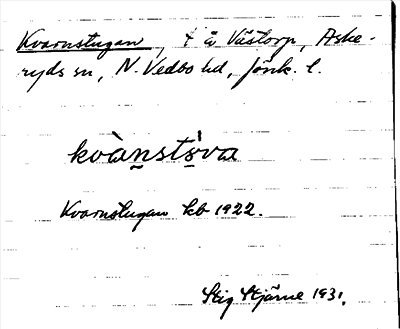 Kvarnstugan, t å Västorp, Aske-
ryds sn, N. Vedbo hd, Jönk. l.
kvànstòva
Kvarnstugan kb 1922.
Stig Stjärne 1931.